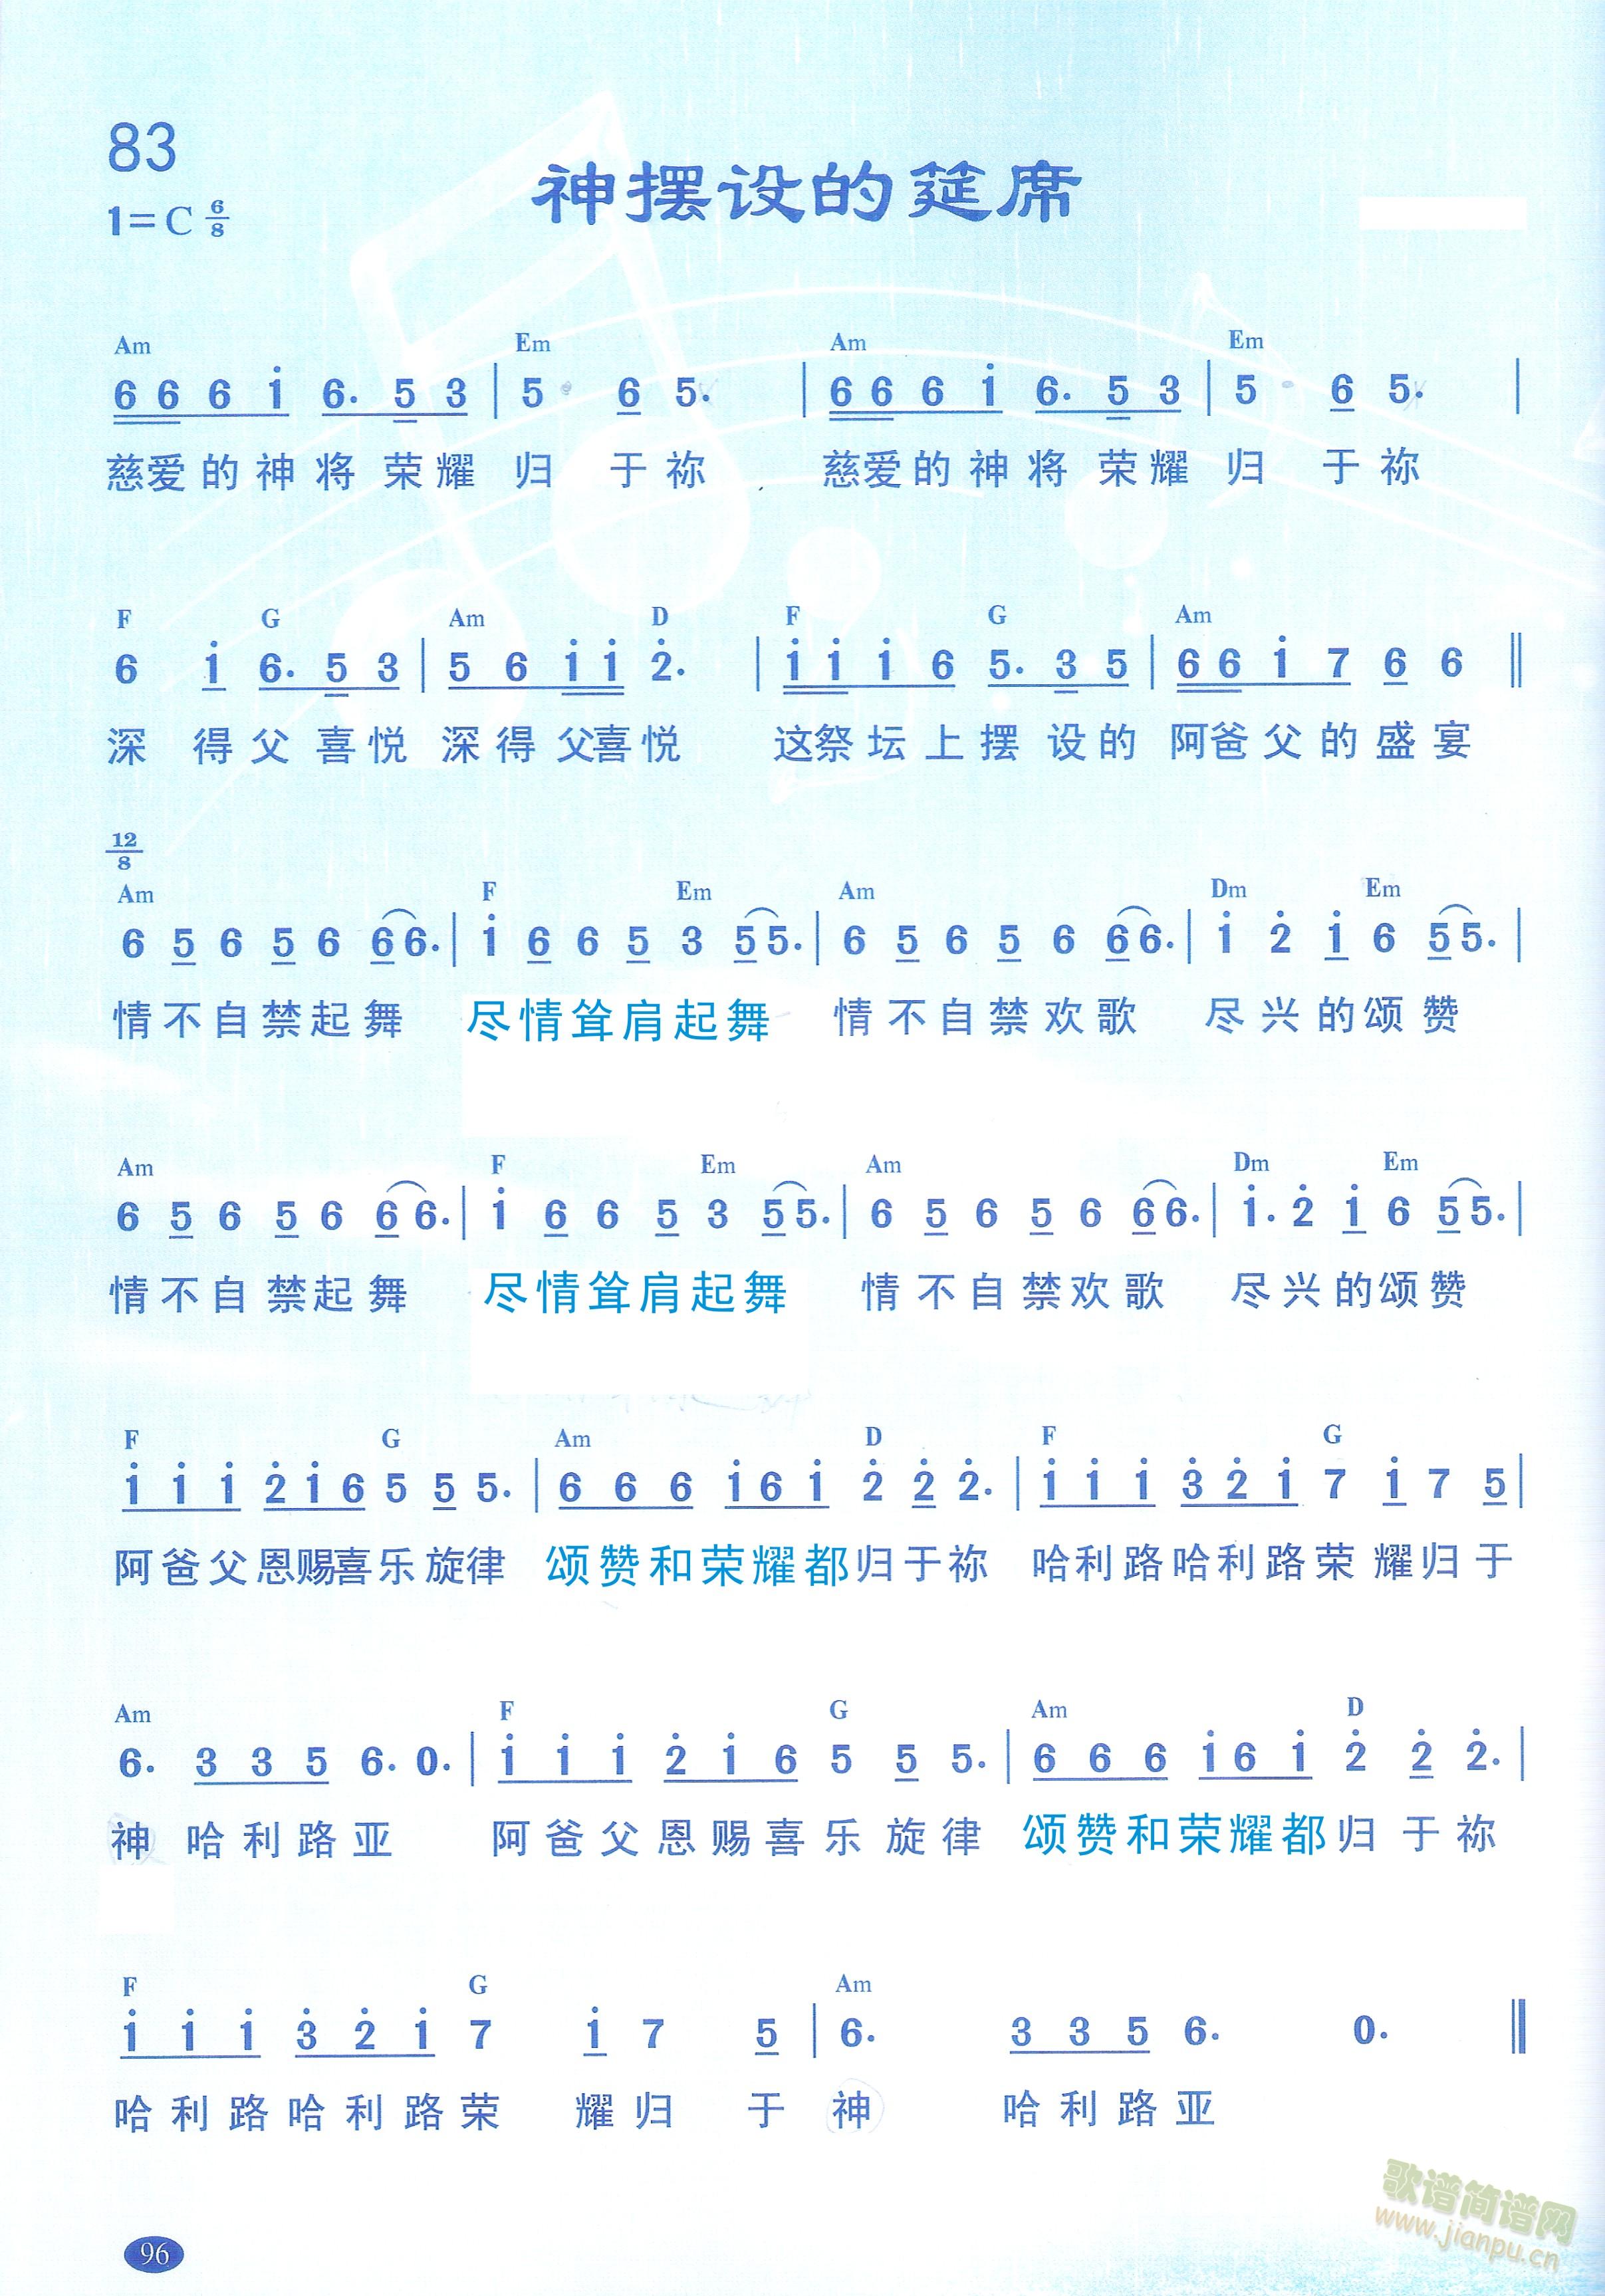 83
神摆设的筵席
1=C 6/8
Am Em Am Em
6 6 6 1̇ 6. 5 3 | 5 6 5. | 6 6 6 1̇ 6. 5 3 | 5 6 5. |
慈爱的神将荣耀归于祢 慈爱的神将荣耀归于祢
F G Am D F G Am
6 1̇ 6. 5 3 | 5 6 1̇ 1̇ 2̇. | 1̇ 1̇ 1̇ 6 5. 3 5 | 6 6 1̇ 7 6 6 ‖
深得父喜悦 深得父喜悦 这祭坛上摆设的 阿爸父的盛宴
12/8
Am F Em Am Dm Em
6 5 6 5 6 6 6. | 1̇ 6 6 5 3 5 5. | 6 5 6 5 6 6 6. | 1̇ 2̇ 1̇ 6 5 5. |
情不自禁起舞 尽情耸肩起舞 情不自禁欢歌 尽兴的颂赞
Am F Em Am Dm Em
6 5 6 5 6 6 6. | 1̇ 6 6 5 3 5 5. | 6 5 6 5 6 6 6. | 1̇. 2̇ 1̇ 6 5 5. |
情不自禁起舞 尽情耸肩起舞 情不自禁欢歌 尽兴的颂赞
F G Am D F G
1̇ 1̇ 1̇ 2̇ 1̇ 6 5 5 5. | 6 6 6 1̇ 6 1̇ 2̇ 2̇ 2̇. | 1̇ 1̇ 1̇ 3̇ 2̇ 1̇ 7 1̇ 7 5 |
阿爸父恩赐喜乐旋律 颂赞和荣耀都归于祢 哈利路哈利路荣耀归于
Am F G Am D
6. 3 3 5 6. 0. | 1̇ 1̇ 1̇ 2̇ 1̇ 6 5 5 5. | 6 6 6 1̇ 6 1̇ 2̇ 2̇ 2̇. |
神哈利路亚 阿爸父恩赐喜乐旋律 颂赞和荣耀都归于祢
F G Am
1̇ 1̇ 1̇ 3̇ 2̇ 1̇ 7 1̇ 7 5 | 6. 3 3 5 6. 0. ‖
哈利路哈利路荣耀归于神 哈利路亚
歌谱简谱网
www.jianpu.cn
96